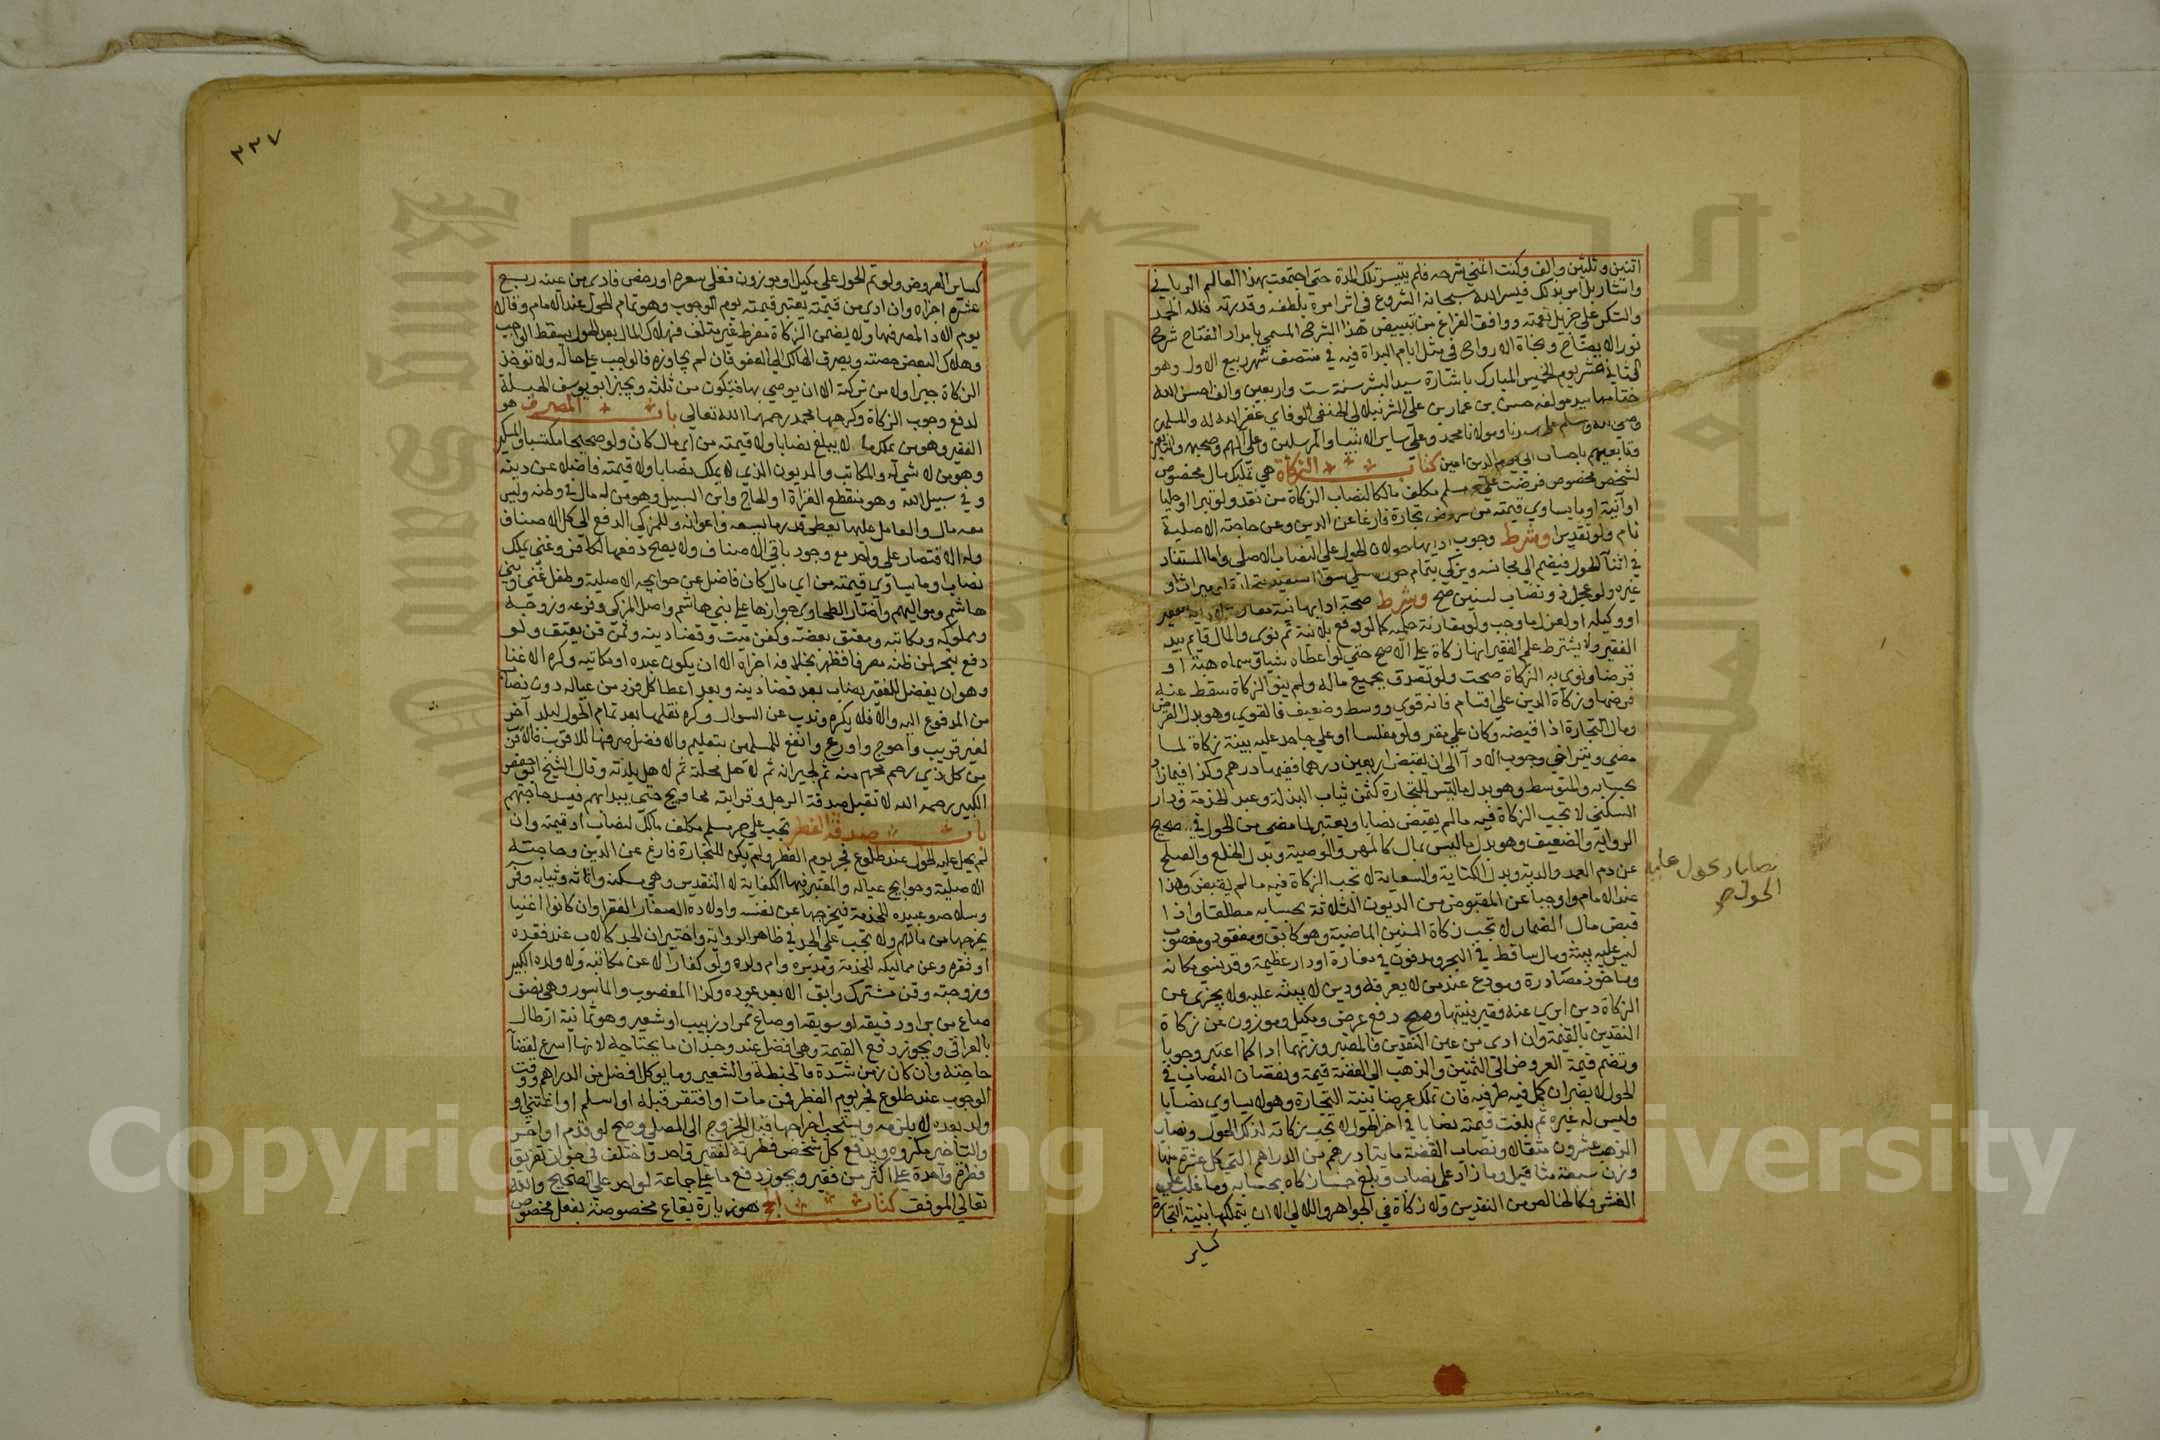 اثنين وثلثين والف وكنت اتمني شرحه فلم يتيسر تلك المدة حتى اجتمعت بهذا العالم الرباني
واشار بل امر بذلك فيسر الله سبحانه الشروع في اثر امره بلطفه وقدرته فلله الحمد
والشكر على جزيل نعمته ووافق الفراغ من تبييض هذا الشرح المسمي بامداد الفتاح شرح
نور الايضاح ونجاة الارواح في مثل ايام البداة فيه في منتصف شهر ربيع الاول وهو
الثاني عشر يوم الخميس المبارك باشارة سيد البشر سنة ست واربعين والف احسن الله
ختامها بيد مولفه حسن بن عمار بن علي الشرنبلالي الحنفي الوفاي غفر الله له وللمسلمين
وصلى الله وسلم على سيدنا ومولانا محمد وعلى ساير الانبيا والمرسلين وعلى الهم وصحبهم والتابعين
وتابعيهم باحسان الي يوم الدين امين كتاب الزكاة هي تمليك مال مخصوص
لشخص مخصوص فرضت على حر مسلم مكلف مالك لنصاب الزكاة من نقد ولو تبرا او حليا
او آنية او ما يساوي قيمته من عروض تجارة فارغا عن الدين وعن حاجته الاصلية
نام ولو تقديرا وشرط وجوب ادايها حولان الحول على النصاب الاصلي واما المستفاد
في اثنآ الحول فيضم الى مجانسه ويزكي بتمام حول الاصلي سوا استفيد بتجارة او ميراث او
غيره ولو عجل ذو نصاب لسنين صح وشرط صحة ادايها نية مقارنة لادايها للفقير
او وكيله او لعزل ما وجب ولو مقارنة حكمية كما لو دفع بلا نية ثم نوى والمال قايم بيد
الفقير ولا يشترط علم الفقير انها زكاة على الاصح حتى لو اعطاه شيا وسماه هبة او
قرضا ونوى به الزكاة صحت ولو تصدق بجميع ماله ولم ينو الزكاة سقط عنه
فرضها وزكاة الدين على اقسام فانه قوي ووسط وضعيف فالقوي وهو بدل القرض
ومال التجارة اذا قبضه وكان على مقر ولو مفلسا او على جاحد عليه بينة زكاة لما
مضي ويتراخي وجوب الادآ الى ان يقبض اربعين درهما ففيها درهم وكذا فيما زاد
بحسابه والمتوسط وهو بدل ما ليس للتجارة كثمن ثياب البذلة وعبد الخدمة ودار
السكنى لا تجب الزكاة فيه ما لم يقبض نصابا ويعتبر لما مضى من الحول في صحيح
الرواية والضعيف وهو بدل ما ليس بمال كالمهر والوصية وبدل الخلع والصلح
عن دم العمد والدية وبدل الكتابة والسعاية لا تجب الزكاة فيه ما لم يقبض وهذا
نصابا ويحول عليه
الحول صح
عند الامام واوجبا عن المقبوض من الديون الثلاثة بحسابه مطلقا واذا
قبض مال الضمار لا تجب زكاة السنين الماضية وهو كآبق ومفقود ومغصوب
ليس عليه بينة ومال ساقط في البحر ومدفون في مفازة او دار عظيمة وقد نسي مكانه
وماخوذ مصادرة ومودع عند من لا يعرفه ودين لا بينة عليه ولا يجزى عن
الزكاة دين ابري عنه فقير بنيتها وصح دفع عرض ومكيل وموزون عن زكاة
النقدين بالقيمة وان ادى من عين النقدين فالمعتبر وزنهما ادا كما اعتبر وجوبا
وتضم قيمة العروض الى الثمنين والذهب الى الفضة قيمة ونقصان النصاب في
الحول لا يضر ان كمل في طرفيه فان تملك عرضا بنية التجارة وهو لا يساوي نصابا
وليس له غيره ثم بلغت قيمته نصابا في اخر الحول لا تجب زكاته لذلك الحول ونصاب
الذهب عشرون مثقالا ونصاب الفضة مايتا درهم من الدراهم التي كل عشرة منها
وزن سبعة مثاقيل وما زاد على نصاب وبلغ خمسا زكاه بحسابه وما غلب على
الغش فكالخالص من النقدين ولا زكاة في الجواهر واللالي الا ان يتملكها بنية التجارة
كساير
٣٣٧
كساير العروض ولو تم الحول على مكيل او موزون فغلى سعره او رخص فادى من عينه ربع
عشره اجزاه وان ادى من قيمته يعتبر قيمته يوم الوجوب وهو تمام الحول عند الامام وقالا
يوم الادا لمصرفها ولا يضمن الزكاة مفرط غير متلف فهلاك المال بعد الحول يسقط الواجب
وهلاك البعض حصته ويصرف الهالك الى العفو فان لم يجاوزه فالواجب على حاله ولا توخذ
الزكاة جبرا ولا من تركته الا ان يوصي بها فتكون من ثلثه ويجيز ابو يوسف الحيلة
لدفع وجوب الزكاة وكرهها محمد رحمهما الله تعالى باب المصرف هو
الفقير وهو من يملك ما لا يبلغ نصابا ولا قيمته من اى مال كان ولو صحيحا مكتسبا والمسكين
وهو من لا شي له والمكاتب والمديون الذي لا يملك نصابا ولا قيمته فاضلا عن دينه
وفي سبيل الله وهو منقطع الغزاة او الحاج وابن السبيل وهو من له مال في وطنه وليس
معه مال والعامل عليها يعطى قدر ما يسعه واعوانه وللمزكي الدفع الى كل الاصناف
وله الاقتصار على واحد مع وجود باقي الاصناف ولا يصح دفعها لكافر وغني يملك
نصابا او ما يساوي قيمته من اي مال كان فاضل عن حوايجه الاصلية وطفل غني وبني
هاشم ومواليهم واختار الطحاوي جوازها على بني هاشم واصل المزكي وفرعه وزوجته
ومملوكه ومكاتبه ومعتق بعضه وكفن ميت وقضا دينه وثمن قن يعتق ولو
دفع بتحر لمن ظنه مصرفا فظهر بخلافه اجزاه الا ان يكون عبده او مكاتبه وكره الاغنا
وهو ان يفضل للفقير نصاب بعد قضا دينه وبعد اعطا كل فرد من عياله دون نصاب
من المدفوع اليه والا فلا يكره وندب عن السوال وكره نقلها بعد تمام الحول لبلد آخر
لغير قريب واحوج واورع وانفع للمسلمين بتعليم والافضل صرفها للاقرب فالاقرب
من كل ذي رحم محرم منه ثم لجيرانه ثم لاهل محلته ثم لاهل بلدته وقال الشيخ ابو حفص
الكبير رحمه الله لا تقبل صدقة الرجل وقرابته محاويج حتى يبدا بهم فيسد حاجتهم
باب صدقة الفطر تجب على حر مسلم مكلف مالك لنصاب او قيمته وان
لم يحل عليه الحول عند طلوع فجر يوم الفطر ولم يكن للتجارة فارغ عن الدين وحاجته
الاصلية وحوايج عياله والمعتبر فيها الكفاية لا التقدير وهي مسكنه واثاثه وثيابه وفرسه
وسلاحه وعبيده للخدمة فيخرجها عن نفسه واولاده الصغار الفقرا وان كانوا اغنيا
يخرجها من مالهم ولا تجب على الجد في ظاهر الرواية واختير ان الجد كالاب عند فقده
او فقره وعن مماليكه للخدمة ومدبره وام ولده ولو كفارا لا عن مكاتبه ولا ولده الكبير
وزوجته وقن مشترك وآبق الا بعد عوده وكذا المغصوب والماسور وهي نصف
صاع من بر او دقيقه او سويقه او صاع تمر او زبيب او شعير وهو ثمانية ارطال
بالعراقي ويجوز دفع القيمة وهي افضل عند وجدان ما يحتاجه لانها اسرع لقضآ
حاجته وان كان زمن شدة فالحنطة والشعير وما يوكل افضل من الدراهم ووقت
الوجوب عند طلوع فجر يوم الفطر فمن مات او افتقر قبله او اسلم او اغتني او
ولد بعده لا يلزمه ويستحب اخراجها قبل الخروج الى المصلى وصح لو قدم او اخر
والتاخير مكروه ويدفع كل شخص فطرته لفقير واحد واختلف في جواز تفريق
فطرة واحدة على اكثر من فقير ويجوز دفع ما على جماعة لواحد على الصحيح والله
تعالى الموفق كتاب الحج هو زيارة بقاع مخصوصة بفعل مخصوص
Copyright King University